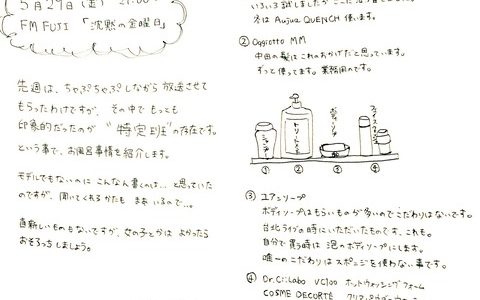 5月29日(金) 21:00~
FM FUJI 「沈黙の金曜日」
先週は、ちゃぷちゃぷしながら放送させて
もらったわけですが、その中でもっとも
印象的だったのが "特定班"の存在です。
という事で、お風呂事情を紹介します。
モデルでもないのに こんなん書くのは…と思っていた
のですが、聞いてくれるかたも まあいるので…。
真新しいものもないですが、女の子とかは よかったら
おそろっちしましょう。
いろいろ試しましたが
冬は Aujua QUENCH 使います。
② Oggiotto MM
中田の髪はこれのおかげだと思っています。
ずっと使ってます。業務用のです。
シャンプー
トリートメント
ボディソープ
フェイスウォッシュ
① ② ③ ④
③ ユアンソープ
ボディソープはもらいものが多いのでこだわりはないです。
台北ライブの時にいただいたものです、これも。
自分で買う時は 泡のボディソープにします。
唯一のこだわりは スポンジを使わない事です。
④ Dr.Ci:Labo VC100 ホットウォッシングフォーム
COSME DECORTÉ